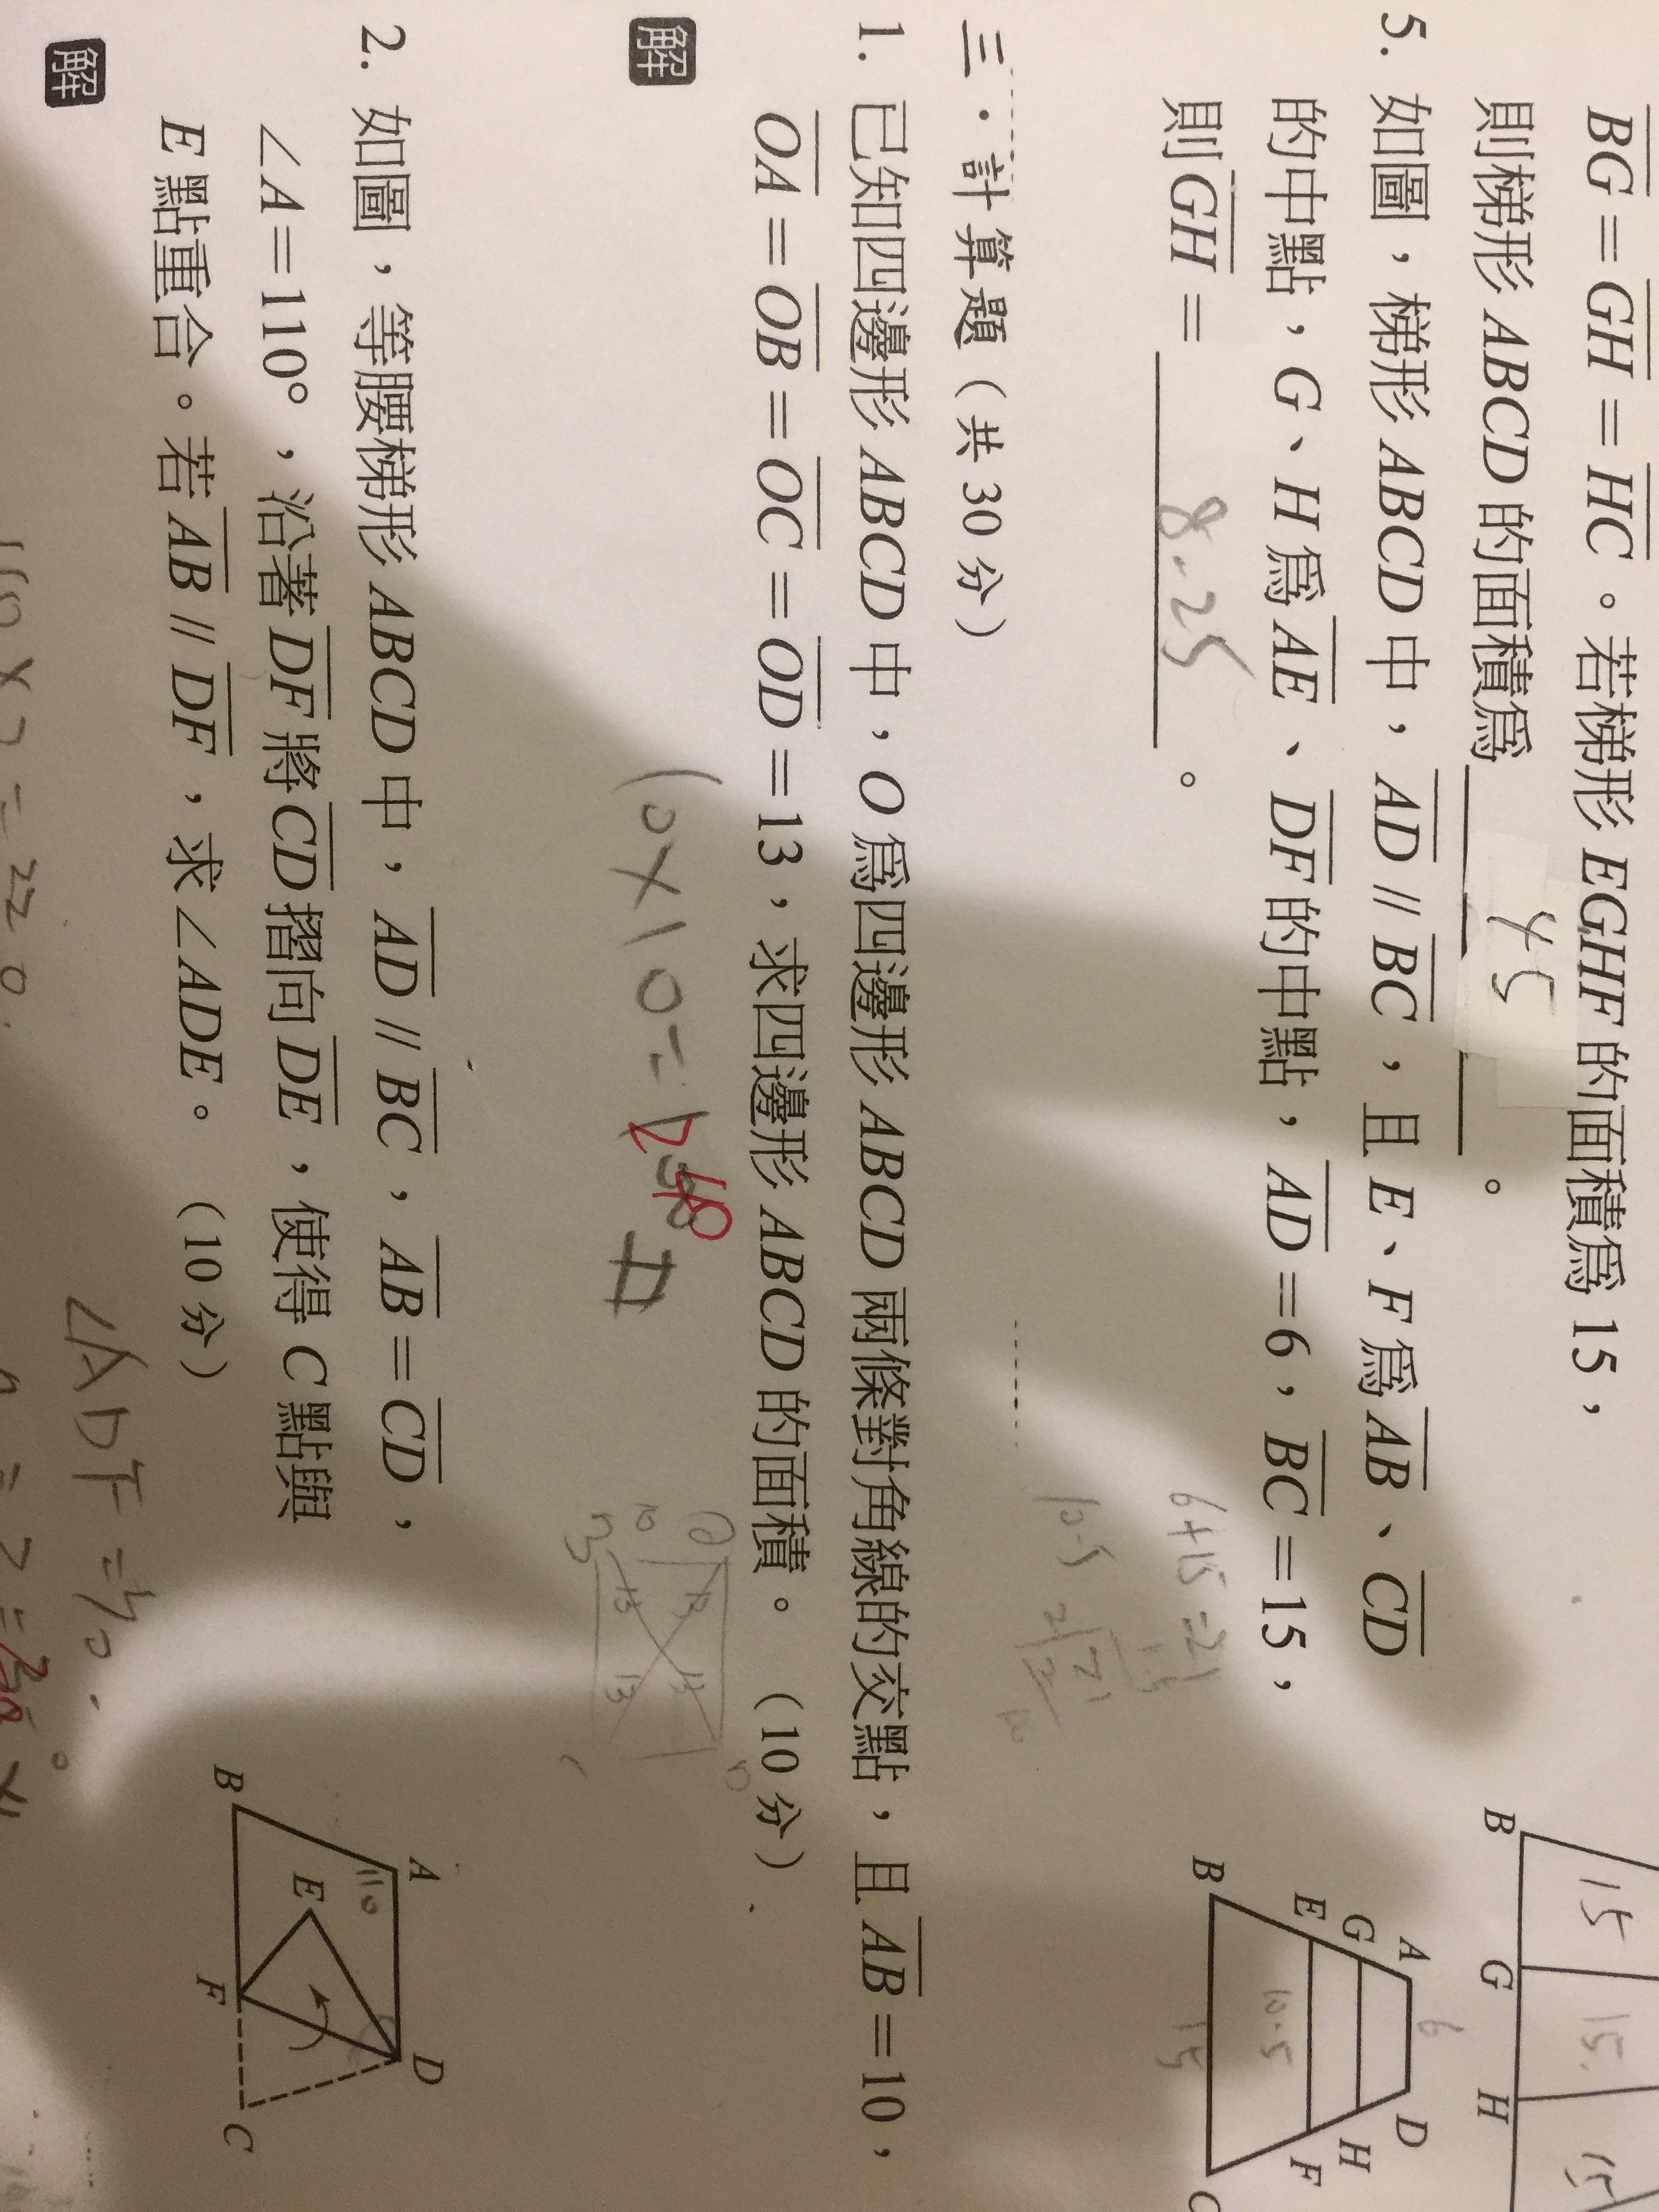 BG = GH = HC。若梯形 EGHF 的面積為 15，
則梯形 ABCD 的面積為 45 。
5. 如圖，梯形 ABCD 中，AD // BC，且 E、F 為 AB、CD
的中點，G、H 為 AE、DF 的中點，AD = 6，BC = 15，
則 GH = 8.25 。
6+15=21
10.5
B G H
15 15 15
A D G H E F B
6
10.5
15
三、計算題（共 30 分）
1. 已知四邊形 ABCD 中，O 為四邊形 ABCD 兩條對角線的交點，且 AB = 10，
OA = OB = OC = OD = 13，求四邊形 ABCD 的面積。（10 分）
解
240
10
13 13
13 13
2. 如圖，等腰梯形 ABCD 中，AD // BC，AB = CD，
∠A = 110°，沿著 DF 將 CD 摺向 DE，使得 C 點與
E 點重合。若 AB // DF，求 ∠ADE。（10 分）
解
A D
110
E
B F C
110×2=220